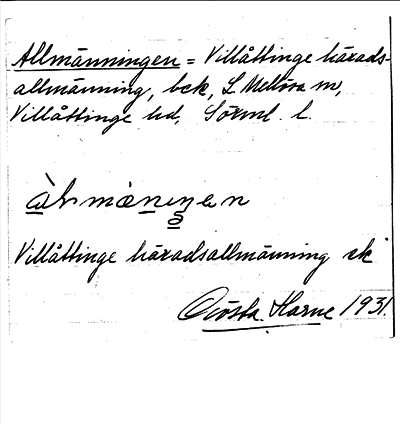 Allmänningen = Villåttinge härads-
allmänning, bck, L. Mellösa sn,
Villåttinge hd, Sörml. l.
Villåttinge häradsallmänning sk
Gösta Harne 1931.